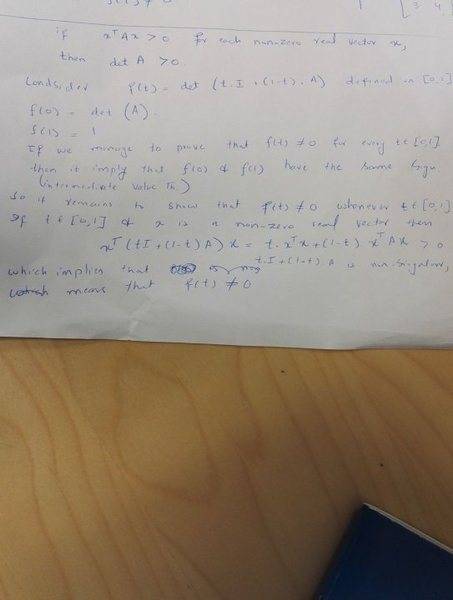 [3 4
if xᵀAx > 0 for each non-zero real vector x,
then det A > 0.
Consider f(t) = det (t.I + (1-t).A) defined in [0,1]
f(0) = det (A).
f(1) = 1
If we manage to prove that f(t) ≠ 0 for every t∈[0,1]
then it imply that f(0) & f(1) have the same sign.
(intermediate value Th.)
So it remains to show that f(t) ≠ 0 whenever t∈[0,1]
If t∈[0,1] & x is a non-zero real vector then
xᵀ(tI + (1-t)A)x = t.xᵀx + (1-t) xᵀAx > 0
which implies that t.I + (1-t) A is non-singular,
which means that f(t) ≠ 0